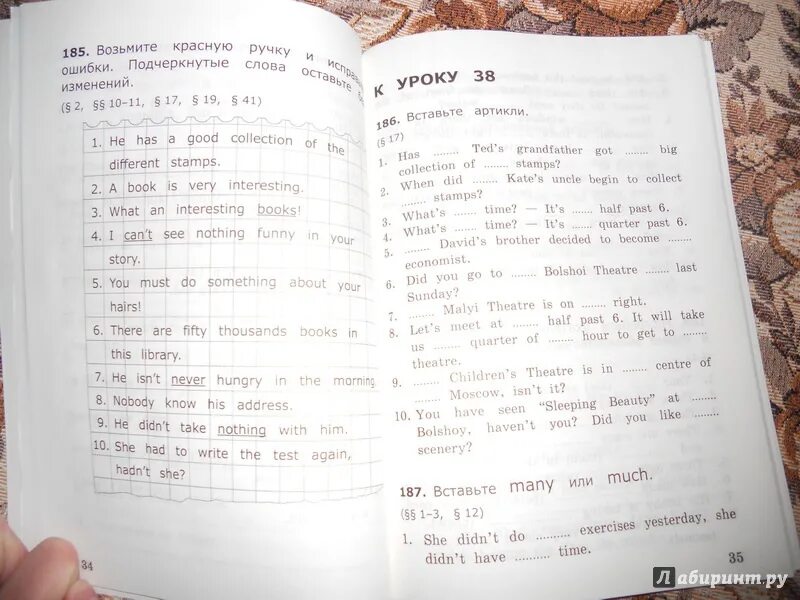 185. Возьмите красную ручку и
ошибки. Подчеркнутые слова оставьте
изменений.
(§ 2, §§ 10–11, § 17, § 19, § 41)
1. He has a good collection of the
different stamps.
2. A book is very interesting.
3. What an interesting books!
4. I can't see nothing funny in your
story.
5. You must do something about your
hairs!
6. There are fifty thousands books in
this library.
7. He isn't never hungry in the morning.
8. Nobody know his address.
9. He didn't take nothing with him.
10. She had to write the test again,
hadn't she?
34
К УРОКУ 38
186. Вставьте артикли.
(§ 17)
1. Has ........ Ted's grandfather got ........ big
collection of ........ stamps?
2. When did ........ Kate's uncle begin to collect
........ stamps?
3. What's ........ time? — It's ........ half past 6.
4. What's ........ time? — It's ........ quarter past 6.
5. ........ David's brother decided to become ........
economist.
6. Did you go to ........ Bolshoi Theatre ........ last
Sunday?
7. ........ Malyi Theatre is on ........ right.
8. Let's meet at ........ half past 6. It will take
us ........ quarter of ........ hour to get to ........
theatre.
9. ........ Children's Theatre is in ........ centre of
........ Moscow, isn't it?
10. You have seen "Sleeping Beauty" at ........
Bolshoy, haven't you? Did you like ........
scenery?
187. Вставьте many или much.
(§§ 1–3, § 12)
1. She didn't do .......... exercises yesterday, she
didn't have .......... time.
35
Лабиринт.ру